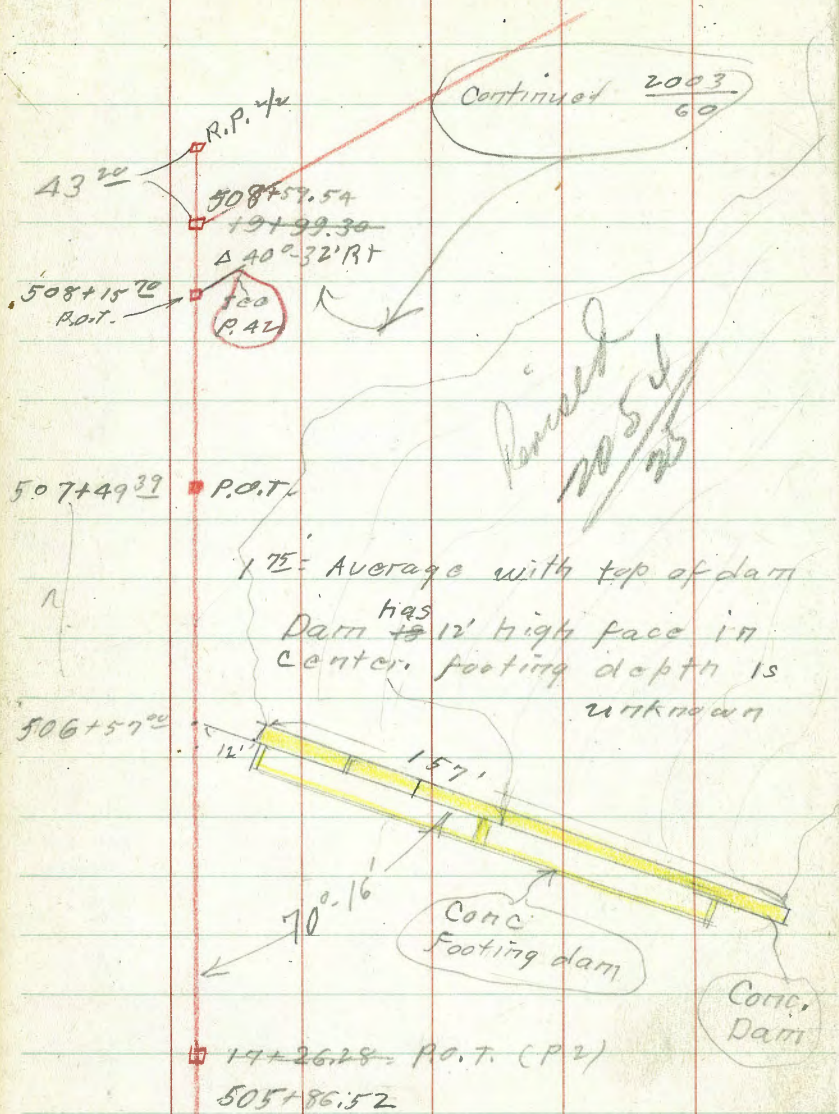 Continued 2003/60
R.P.
43 20
508+59.54
19+99.30
Δ 40°-32' Rt
508+15 70
P.O.T.
P. 42
Revised
507+49 39 P.O.T.
1 75 = Average with top of dam
Dam has 12' high face in
center. footing depth is
unknown
506+57 00
12'
157'
70°-16'
Conc
Footing dam
Conc.
Dam
17+26.28 = P.O.T. (P 2)
505+86.52